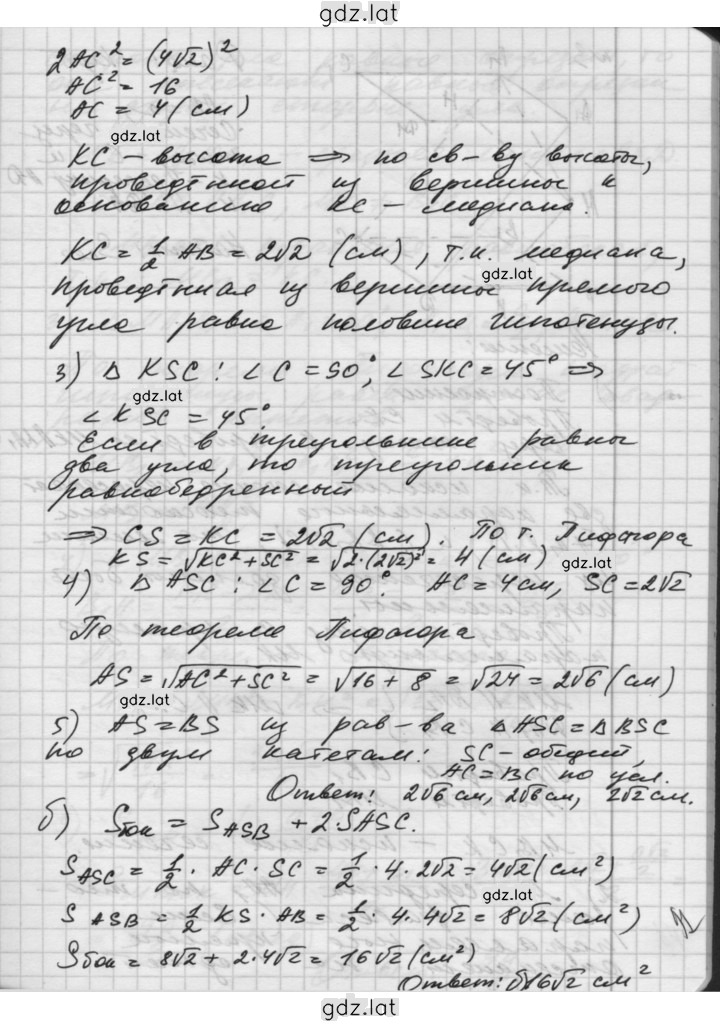 gdz.lat
2AC² = (4√2)²
AC² = 16
AC = 4 (см)
gdz.lat
KC – высота ⇒ по св-ву высоты,
проведённой из вершины к
основанию KC – медиана.
KC = 1/2 AB = 2√2 (см), т.к. медиана,
gdz.lat
проведённая из вершины прямого
угла равна половине гипотенузы.
3) △ KSC: ∠C = 90°, ∠SKC = 45° ⇒
gdz.lat
∠KSC = 45°.
Если в треугольнике равны
два угла, то треугольник
равнобедренный
⇒ CS = KC = 2√2 (см). По т. Пифагора
KS = √(KC² + SC²) = √(2·(2√2)²) = 4 (см)
gdz.lat
4) △ ASC: ∠C = 90°. AC = 4 см, SC = 2√2
По теореме Пифагора
AS = √(AC² + SC²) = √(16 + 8) = √24 = 2√6 (см)
gdz.lat
5) AS = BS из рав-ва △ASC = △BSC
по двум катетам: SC – общий,
AC = BC по усл.
Ответ: 2√6 см, 2√6 см, 2√2 см.
б) Sбок = S ASB + 2·S ASC.
S ASC = 1/2 · AC · SC = 1/2 · 4 · 2√2 = 4√2 (см²)
gdz.lat
S ASB = 1/2 KS · AB = 1/2 · 4 · 4√2 = 8√2 (см²)
Sбок = 8√2 + 2·4√2 = 16√2 (см²)
Ответ: 16√2 см²
gdz.lat
gdz.lat